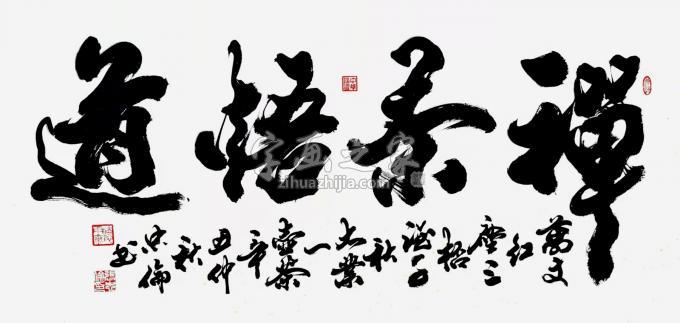 禪茶悟道
萬丈紅塵三杯酒千秋大業一壺茶辛丑仲秋
字画之家
zihuazhijia.com